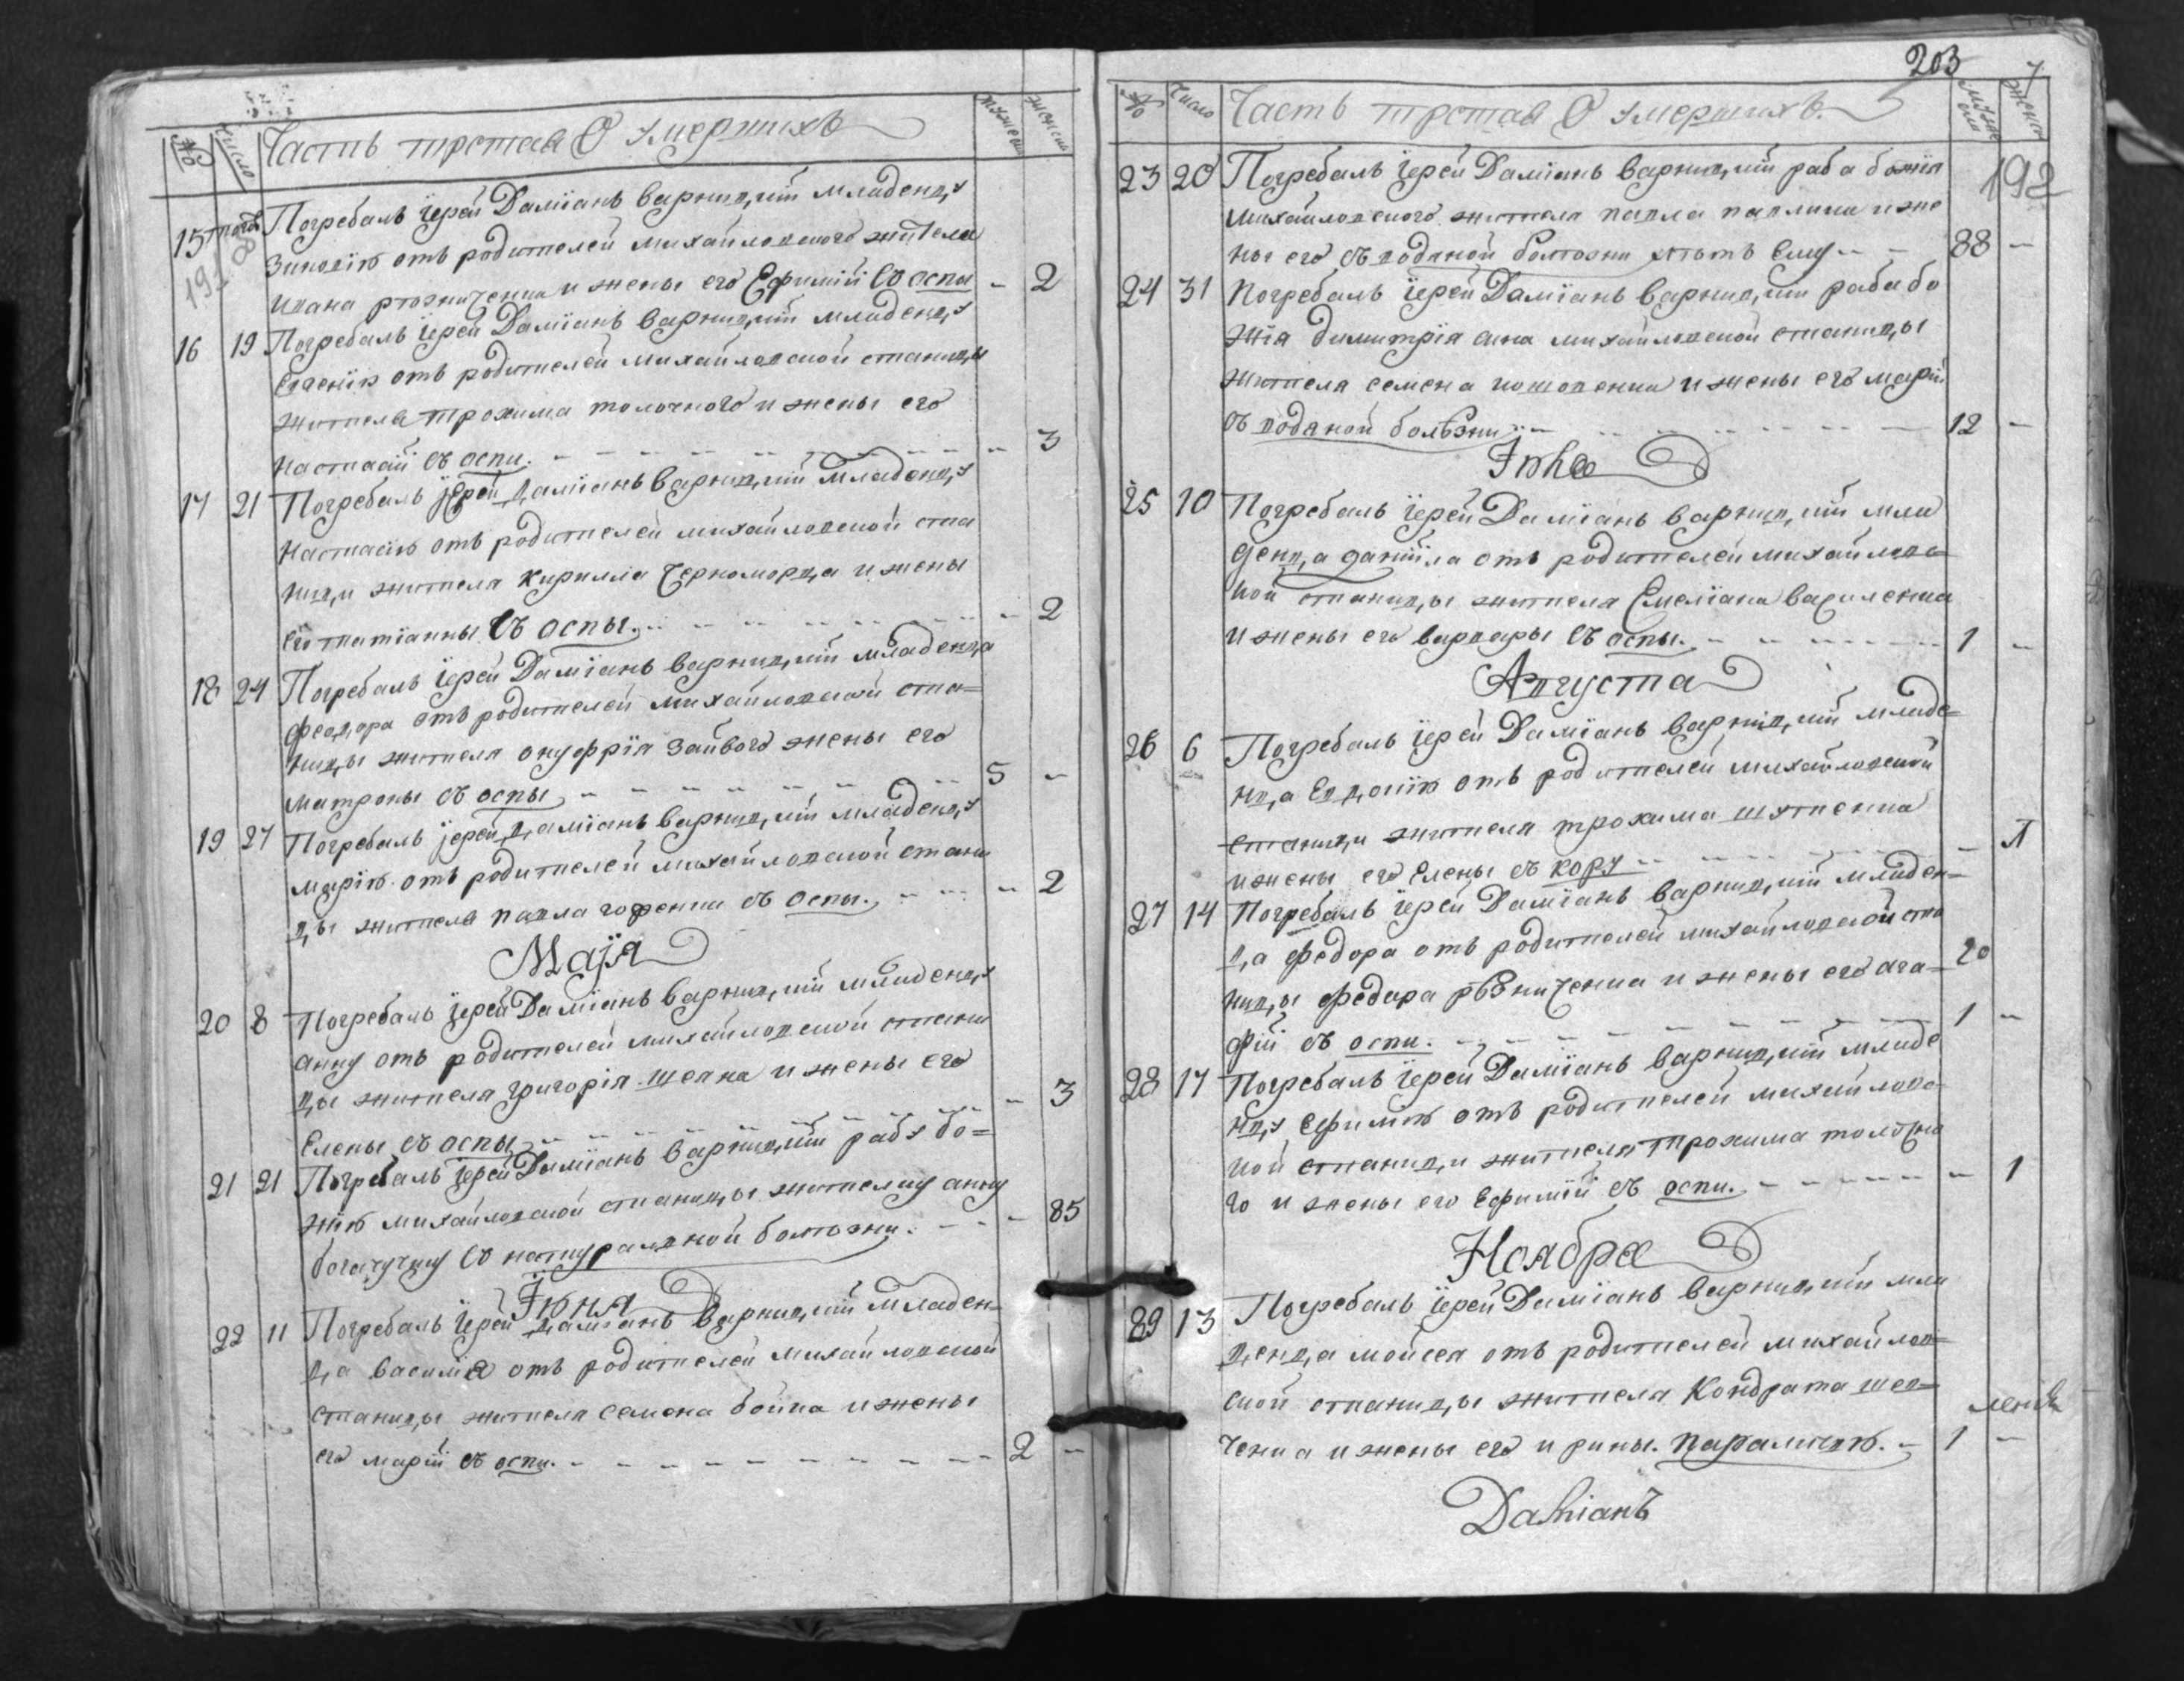 № Число Часть третая О умершихъ мужеска женска
15 тогожъ Погребалъ їерей Даміанъ Варницкій младенцу
Зиновію отъ родителей михайловского жителя
Ивана резниченка и жены его Ефимїи Со оспы - 2
16 19 Погребалъ їерей Даміанъ Варницкій младенцу
Евгенію отъ родителей михайловской станицы
жителя трохима толочного и жены его
настасїи съ оспи. - 3
17 21 Погребалъ їерей Даміанъ Варницкій младенцу
Настасію отъ родителей михайловской ста
ници жителя Кирилла Черноморца и жены
его татіанны Съ оспы. - 2
18 24 Погребалъ їерей Даміанъ Варницкій младенца
феодора отъ родителей михайловской ста=
ницы жителя онуфрія жены его
матроны съ оспы 5 -
19 27 Погребалъ їерей Даміанъ Варницкій младенцу
марію отъ родителей михайловской стани
цы жителя павла съ оспы. - 2
Маія
20 8 Погребалъ їерей Даміанъ Варницкій младенцу
анну отъ родителей михайловской стани
цы жителя григорія и жены его
Елены съ оспы - 3
21 21 Погребалъ їерей Даміанъ Варницкій рабу бо=
жію михайловской станицы жителку анну
Со натуралной болѣзни. - 85
Їюня
22 11 Погребалъ їерей Даміанъ Варницкій младен-
ца василія отъ родителей михайловской
станицы жителя семена бойка и жены
его марїи съ оспи. 2 -
203
№ Число Часть третая О умершихъ. мужеска женска
23 20 Погребалъ їерей Даміанъ Варницкій раба божія
михайловского жителя павла и же
ны его съ водяной болѣзни лѣтъ ему 88 -
192
24 31 Погребалъ їерей Даміанъ Варницкій раба бо
жія димитрія сина михайловской станицы
жителя семена и жены его марїи
съ водяной болѣзни 12 -
Їюля
25 10 Погребалъ їерей Даміанъ Варницкій мла
денца даніила отъ родителей михайловс=
кой станицы жителя Емеліана василенка
и жены его варвары съ оспы. 1 -
Августа
26 6 Погребалъ їерей Даміанъ Варницкій младе=
нца Евдокію отъ родителей михайловской
станици жителя трохима
и жены его Елены съ кору -
27 14 Погребалъ їерей Даміанъ Варницкій младен=
ца федора отъ родителей михайловской ста
ницы федора рѣзниченка и жены его ага=
фїи съ оспи. 1 -
20
28 17 Погребалъ їерей Даміанъ Варницкій младе
нцу Ефимію отъ родителей михайловс-
кой станици жителя трохима толочно
го и жены его Ефимїи съ оспи. - 1
Ноября
29 13 Погребалъ їерей Даміанъ Варницкій мла
денца мойсея отъ родителей михайлов=
ской станицы жителя Кондрата шев=
ченка и жены его ирины. 1 -
Даміанъ